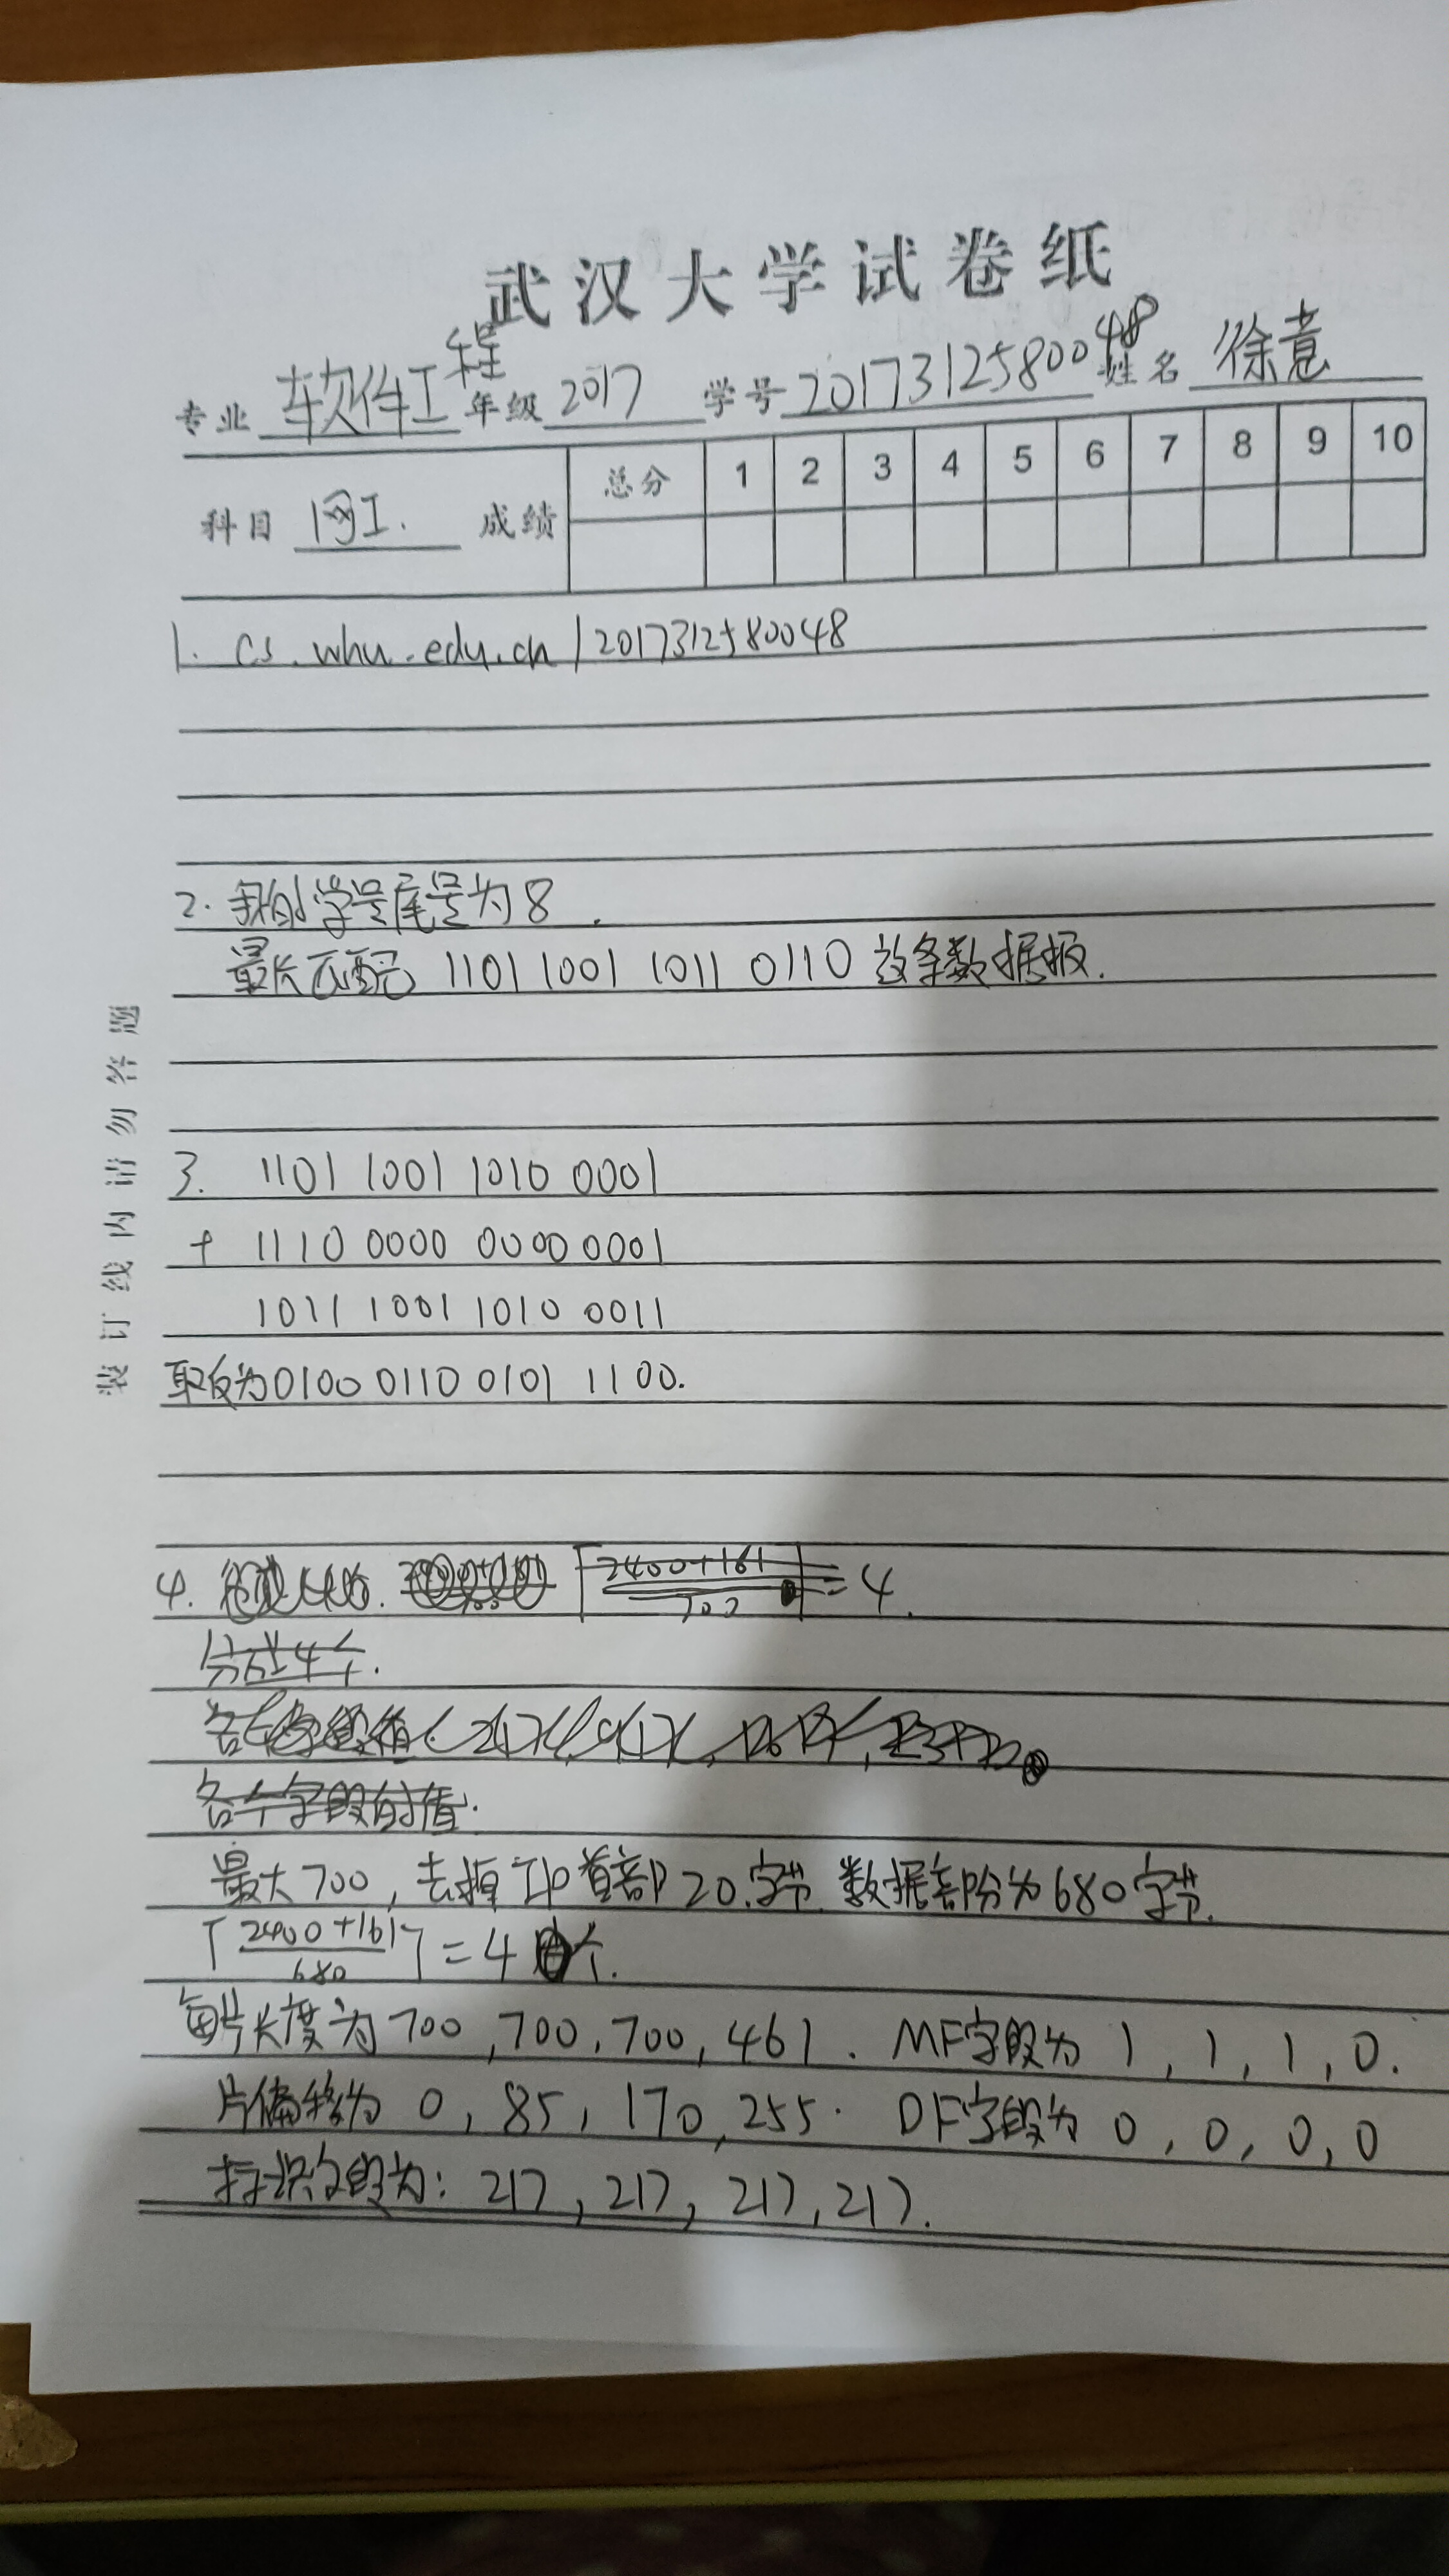 武汉大学试卷纸
专业 软件工程 年级 2017 学号 2017312580048 姓名 徐意
科目 网工. 成绩 总分 1 2 3 4 5 6 7 8 9 10
1. cs.whu.edu.cn/2017312580048
2. 我的学号尾号为8.
最长匹配 1101 1001 1011 0110 这条数据报.
装订线内请勿答题
3. 1101 1001 1010 0001
+ 1110 0000 0000 0001
1011 1001 1010 0011
取反为0100 0110 0101 1100.
4. ⌈2400+161/700⌉=4.
分成4个.
各个字段的值.
最大700,去掉IP首部20字节.数据部分为680字节.
⌈2400+161/680⌉=4个.
每片长度为700,700,700,461. MF字段为1,1,1,0.
片偏移为 0,85,170,255. DF字段为0,0,0,0
标识字段为:217,217,217,217.